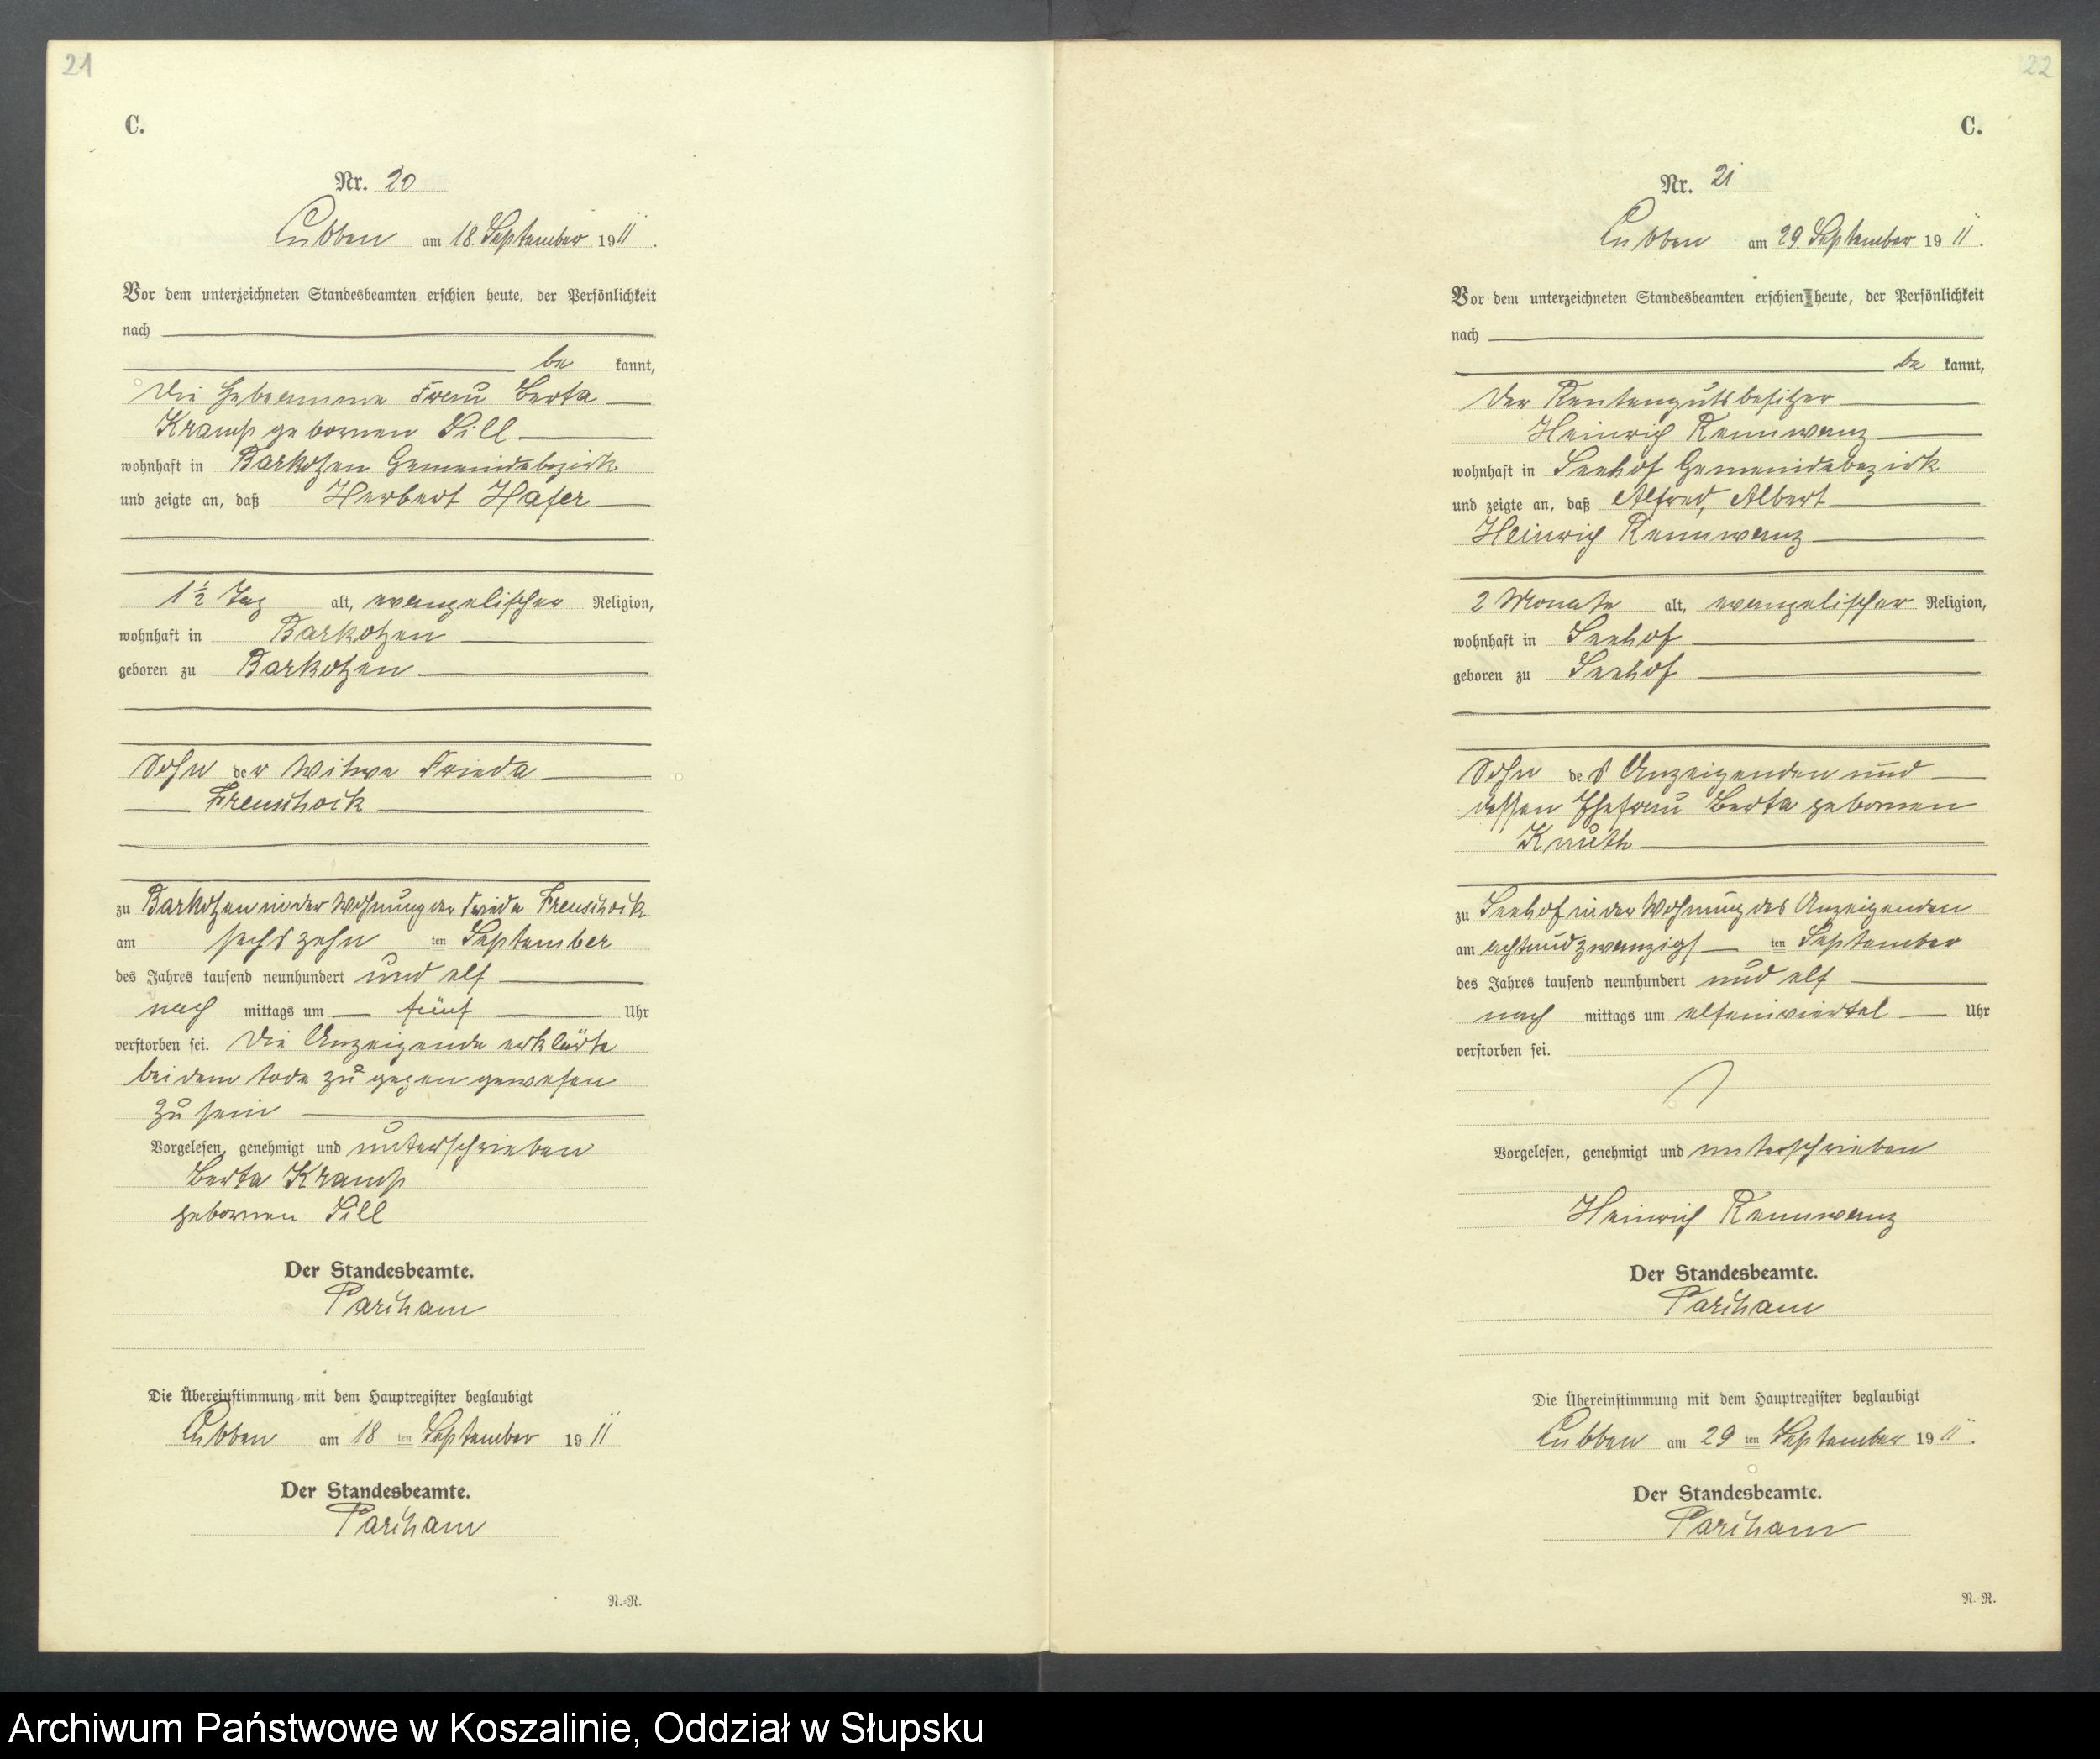 21
C.
Nr. 20
Lubben am 18. September 1911.
Vor dem unterzeichneten Standesbeamten erschien heute, der Persönlichkeit
nach
be kannt,
die Hebeamme Frau Berta
Kramp geborenen Sill
wohnhaft in Barkotzen Gemeindebezirk
und zeigte an, daß Herbert
1½ Tag alt, evangelischer Religion,
wohnhaft in Barkotzen
geboren zu Barkotzen
Sohn der Witwe Frieda
zu Barkotzen in der Wohnung der Frieda
am sechszehn ten September
des Jahres tausend neunhundert und elf
nach mittags um fünf Uhr
verstorben sei. Die Anzeigende erklärte
bei dem Tode zu gegen gewesen
zu sein
Vorgelesen, genehmigt und unterschrieben
Berta Kramp
geborenen Sill
Der Standesbeamte.
Die Übereinstimmung mit dem Hauptregister beglaubigt
Lubben am 18 ten September 1911
Der Standesbeamte.
N.-R.
22
C.
Nr. 21
Lubben am 29. September 1911.
Vor dem unterzeichneten Standesbeamten erschien heute, der Persönlichkeit
nach
be kannt,
der Rentengutsbesitzer
Heinrich Rennwanz
wohnhaft in Seehof Gemeindebezirk
und zeigte an, daß Alfred, Albert
Heinrich Rennwanz
2 Monate alt, evangelischer Religion,
wohnhaft in Seehof
geboren zu Seehof
Sohn des Anzeigenden und
dessen Ehefrau Berta geborenen
Knuth
zu Seehof in der Wohnung des Anzeigenden
am achtundzwanzigs ten September
des Jahres tausend neunhundert und elf
nach mittags um elfeinviertel Uhr
verstorben sei.
Vorgelesen, genehmigt und unterschrieben
Heinrich Rennwanz
Der Standesbeamte.
Die Übereinstimmung mit dem Hauptregister beglaubigt
Lubben am 29 ten September 1911.
Der Standesbeamte.
N. R.
Archiwum Państwowe w Koszalinie, Oddział w Słupsku